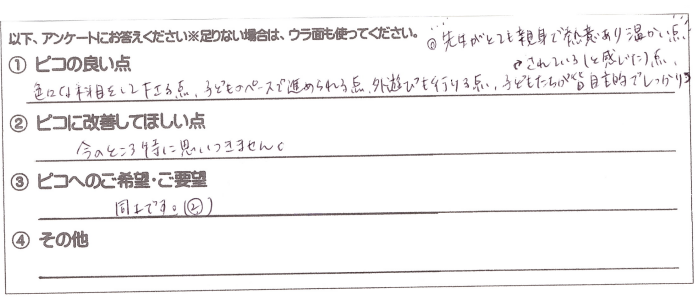 以下、アンケートにお答えください※足りない場合は、ウラ面も使ってください。
◎先生がとても親身で熱意あり温かい点
① ピコの良い点
されている(と感じた)点、
色々な科目をして下さる点、子どものペースで進められる点、外遊びも行ける点、子どもたちが皆自主的でしっかり
② ピコに改善してほしい点
今のところ特に思いつきません。
③ ピコへのご希望・ご要望
同上です。(②)
④ その他